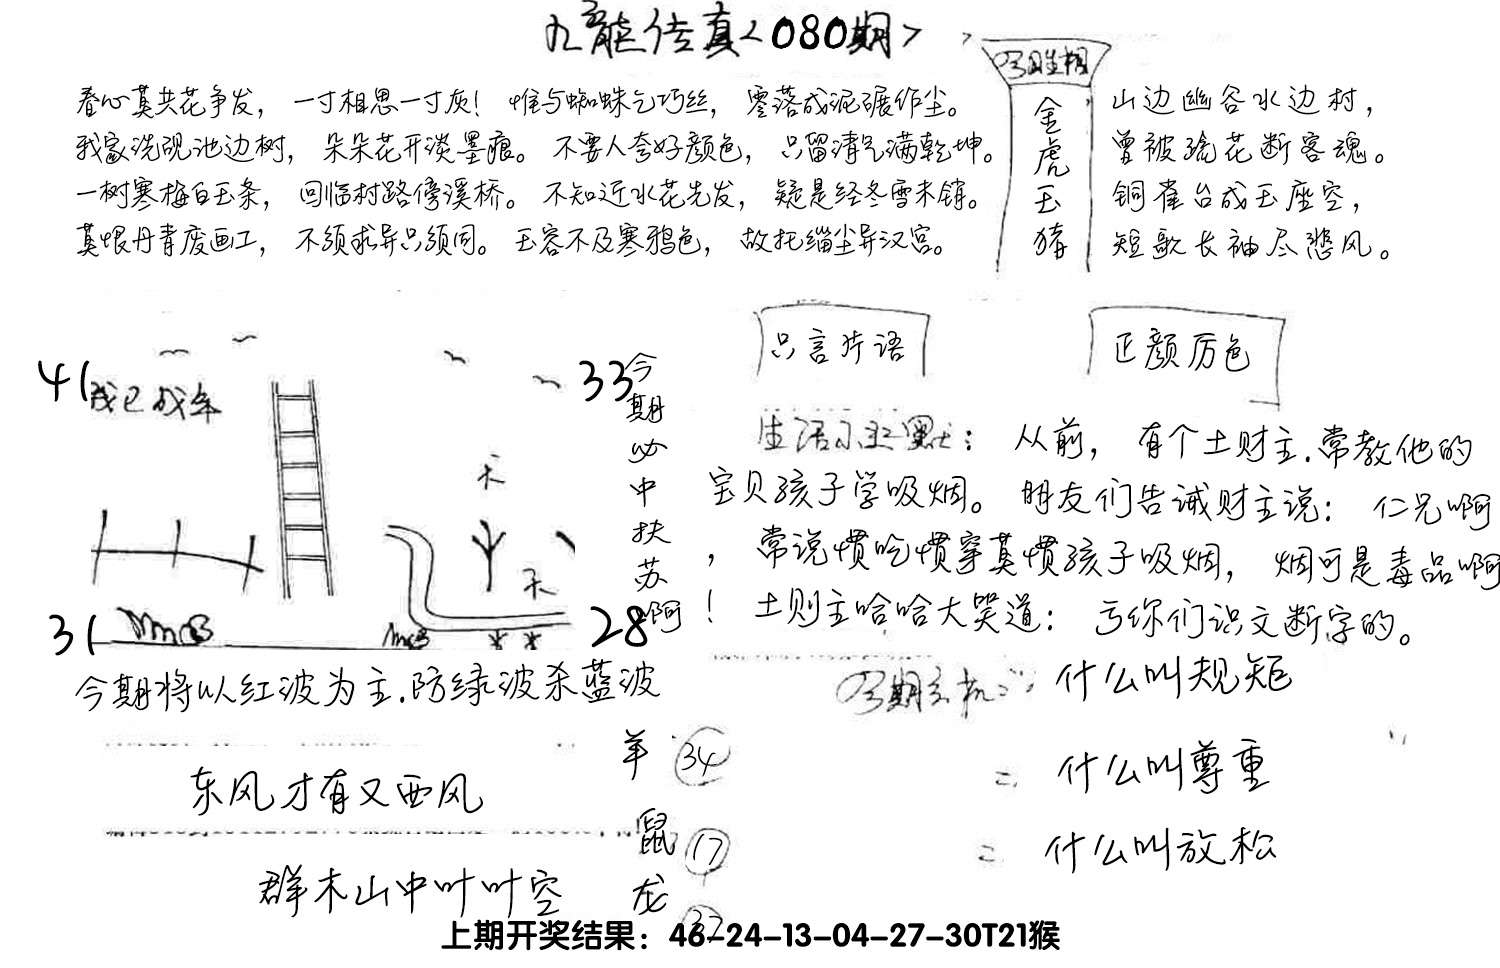 九龙传真<080期>
春心莫共花争发，一寸相思一寸灰！惟与蜘蛛乞巧丝，零落成泥碾作尘。
我家洗砚池边树，朵朵花开淡墨痕。不要人夸好颜色，只留清气满乾坤。
一树寒梅白玉条，回临村路傍溪桥。不知近水花先发，疑是经冬雪未销。
莫恨丹青废画工，不须求异只须同。玉容不及寒鸦色，故托缁尘异汉宫。
金虎玉猪
山边幽谷水边村，
曾被疏花断客魂。
铜雀台成玉座空，
短歌长袖尽悲风。
只言片语
正颜厉色
41
33
我已成年
31
28
天
天
今期必中扶苏啊
从前，有个土财主.常教他的
宝贝孩子学吸烟。朋友们告诫财主说：仁兄啊
，常说惯吃惯穿莫惯孩子吸烟，烟可是毒品啊
！土财主哈哈大笑道：亏你们识文断字的。
今期将以红波为主.防绿波杀蓝波
什么叫规矩
什么叫尊重
什么叫放松
东风才有又西风
群木山中叶叶空
羊 34
鼠 17
龙
上期开奖结果：46-24-13-04-27-30T21猴